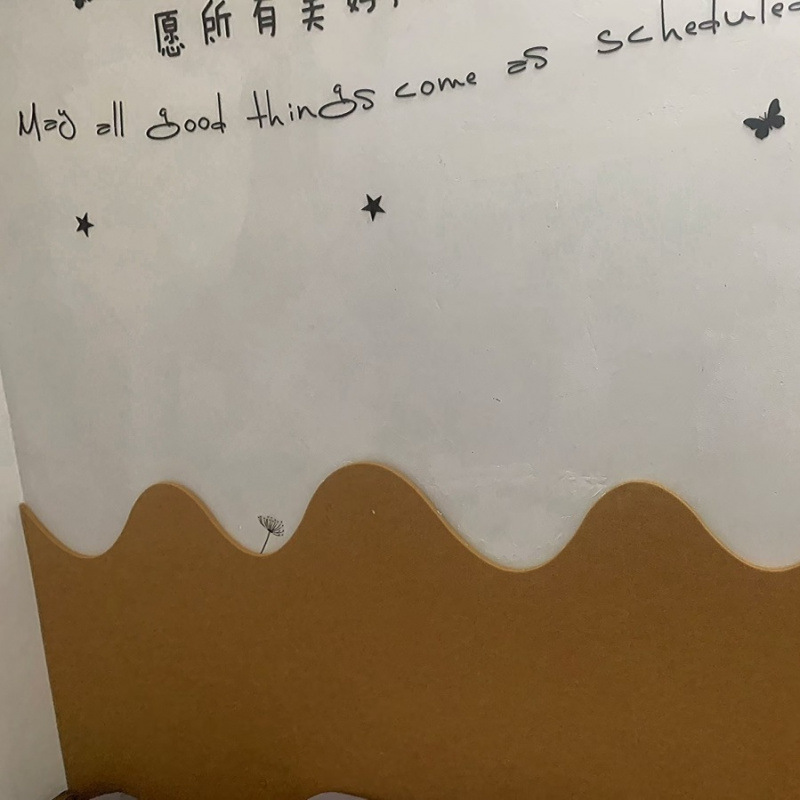 愿所有美好
May all good things come as scheduled